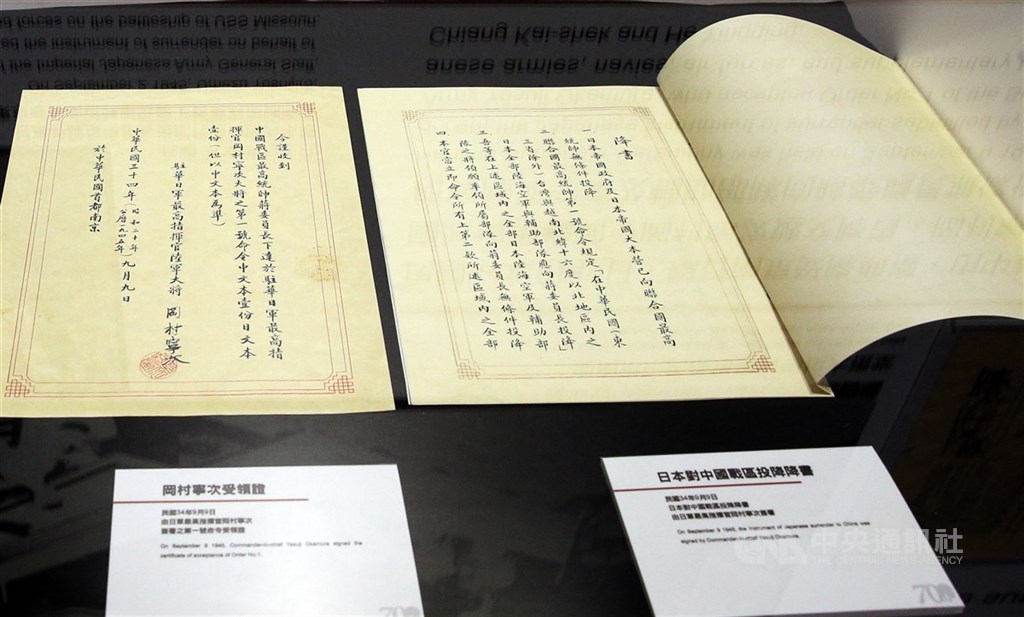 降書
一 日本帝國政府及日本帝國大本營已向聯合國最高
統帥無條件投降
二 聯合國最高統帥第一號命令規定「在中華民國(東
三省除外)台灣與越南北緯十六度以北地區內之
日本全部陸海空軍與輔助部隊應向蔣委員長投降」
三 吾等在上述區域內之全部日本陸海空軍及輔助部
隊之將領願率領所屬部隊向蔣委員長無條件投降
四 本官當立即命令所有上第二款所述區域內之全部
今謹收到
中國戰區最高統帥蔣委員長下達於駐華日軍最高指
揮官岡村寧次大將之第一號命令中文本壹份日文本
壹份(但以中文本為準)
駐華日軍最高指揮官陸軍大將 岡村寧次
中華民國三十四年(昭和二十年 公曆一九四五年)九月九日
於中華民國首都南京
岡村寧次受領證
民國34年9月9日
由日軍最高指揮官岡村寧次
簽署之第一號命令受領證
On September 9 1945, Commander-in-chief Yasuji Okamura signed the
certificate of acceptance of Order No.1.
70
日本對中國戰區投降降書
民國34年9月9日
日本對中國戰區投降降書
由日軍最高指揮官岡村寧次簽署
On September 9 1945, the instrument of Japanese surrender to China was
signed by Commander-in-chief Yasuji Okamura.
70
CNA 中央通訊社
THE CENTRAL NEWS AGENCY
On September 2 1945, Umezu Yoshijiro,
the Imperial Japanese Army General Staff,
the instrument of surrender on behalf of
forces on the battleship of USS Missouri.
anese armies, navies, air forces, and supplementary
Chiang Kai-shek and He Yingqin